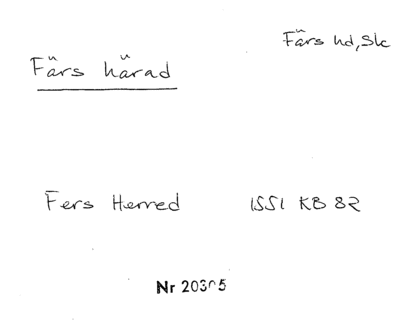 Färs hd, Sk
Färs härad
Fers Herred 1551 KB 82
Nr